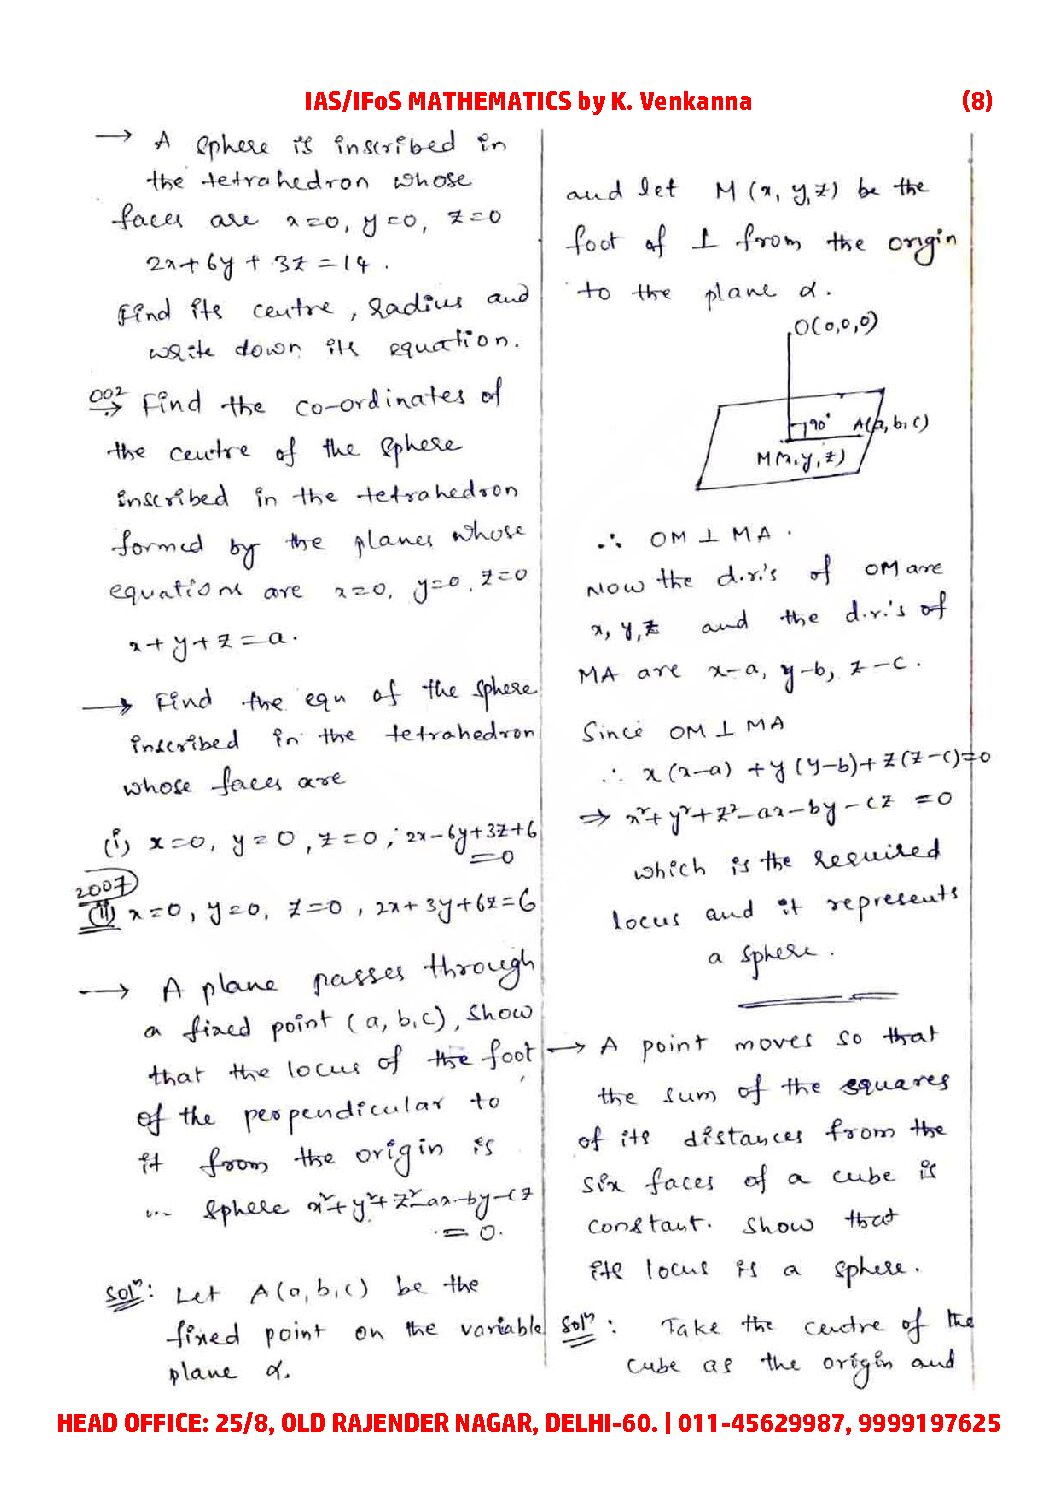 IAS/IFoS MATHEMATICS by K. Venkanna (8)
→ A sphere is inscribed in
the tetrahedron whose
faces are x=0, y=0, z=0
2x+6y+3z=14.
Find its centre, radius and
write down its equation.
002
→ Find the co-ordinates of
the centre of the sphere
inscribed in the tetrahedron
formed by the planes whose
equations are x=0, y=0, z=0
x+y+z=a.
→ Find the equn of the sphere
inscribed in the tetrahedron
whose faces are
(i) x=0, y=0, z=0; 2x-6y+3z+6
=0
2007
(ii) x=0, y=0, z=0, 2x+3y+6z=6
→ A plane passes through
a fixed point (a, b, c), show
that the locus of the foot
of the perpendicular to
it from the origin is
... sphere x²+y²+z²-ax-by-cz
=0.
Solⁿ: Let A(a, b, c) be the
fixed point on the variable
plane α.
and let M(x, y, z) be the
foot of ⊥ from the origin
to the plane α.
O(0,0,0)
90° A(a, b, c)
M(x, y, z)
∴ OM ⊥ MA.
Now the d.r.'s of OM are
x, y, z and the d.r.'s of
MA are x-a, y-b, z-c.
Since OM ⊥ MA
∴ x(x-a)+y(y-b)+z(z-c)=0
⇒ x²+y²+z²-ax-by-cz=0
which is the required
locus and it represents
a sphere.
→ A point moves so that
the sum of the squares
of its distances from the
six faces of a cube is
constant. Show that
its locus is a sphere.
Solⁿ: Take the centre of the
cube as the origin and
HEAD OFFICE: 25/8, OLD RAJENDER NAGAR, DELHI-60. | 011-45629987, 9999197625